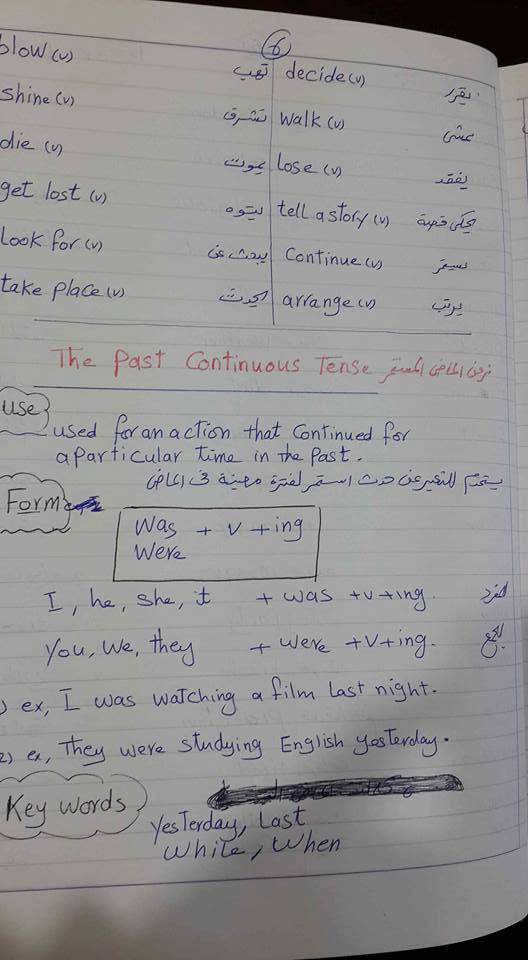 6
blow (v) تهب decide (v) يقرر
shine (v) تشرق walk (v) يمشى
die (v) يموت lose (v) يفقد
get lost (v) يتوه tell a story (v) يحكى قصة
look for (v) يبحث عن Continue (v) يستمر
take place (v) يحدث arrange (v) يرتب
The Past Continuous Tense زمن الماضى المستمر
use
used for an action that continued for
a particular time in the past.
يستخدم للتعبير عن حدث استمر لفترة معينة فى الماضى
Form
Was + v + ing
Were
I, he, she, it + was + v + ing. المفرد
You, We, they + were + v + ing. الجمع
) ex, I was watching a film last night.
2) ex, They were studying English yesterday.
Key words
Yesterday, Last
White, When